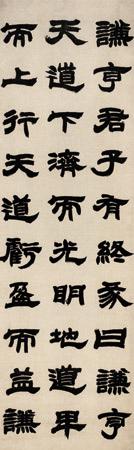 謙亨君子有終彖曰謙亨
天道下濟而光明地道卑
而上行天道虧盈而益謙